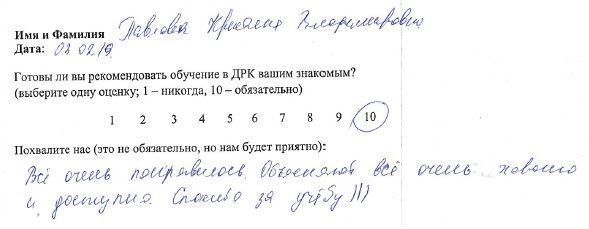 Имя и Фамилия Павловец Кристина Владимировна
Дата: 02.02.19.
Готовы ли вы рекомендовать обучение в ДРК вашим знакомым?
(выберите одну оценку; 1 – никогда, 10 – обязательно)
1 2 3 4 5 6 7 8 9 10
Похвалите нас (это не обязательно, но нам будет приятно):
Всё очень понравилось. Объясняют всё очень хорошо
и доступно. Спасибо за учёбу )))